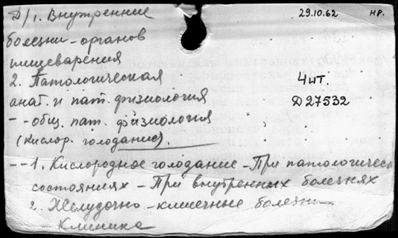 Д/1. Внутренние 29.10.62 нр.
болезни - органов
пищеварения
2. Патологическая 4шт.
анат. и пат. физиология Д27532
-- общ. пат. физиология
(кислор. голодание).
--1. Кислородное голодание - При патологическ
состояниях - При внутренних болезнях
2. Желудочно - кишечные болезни -
- Клиника